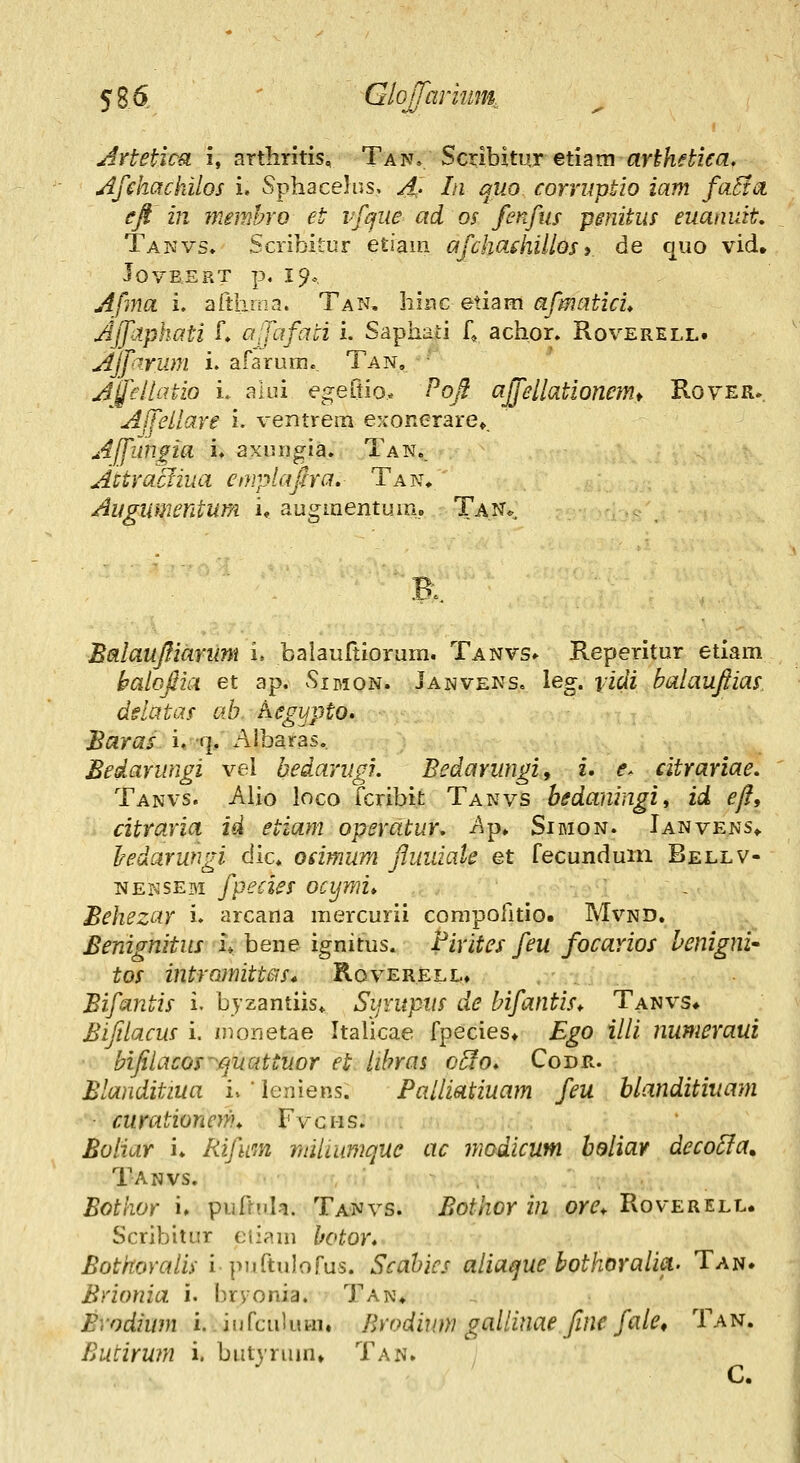 586 Gloſſarium.
Artetica i, arthritis, Tan. Scribitur etiam arthetica.
Aſchachilos i. Sphacelus. A. In quo corruptio iam facta
eſt in membro et vſque ad os ſenſus penitus euanuit.
Tanvs. Scribitur etiam aſchachillos, de quo vid.
Jovbert p. 19.
Aſma i. aſthma. Tan. hinc etiam aſmatici.
Aſſaphati ſ. aſſafati i. Saphati ſ. achor. Roverell.
Aſſarum i. aſarum. Tan.
Aſſellatio i. alui egeſtio. Poſt aſſellationem. Rover.
Aſſellare i. ventrem exonerare.
Aſſungia i. axungia. Tan.
Attractiua emplaſtra. Tan.
Augumentum i. augmentum. Tan.
B.
Balauſtiarum i. balauſtiorum. Tanvs. Reperitur etiam
baloſtia et ap. Simon. Janvens. leg. vidi balauſtias
delatas ab Aegypto.
Baras i. q. Albaras.
Bedarungi vel bedarugi. Bedarungi, i. e. citrariae.
Tanvs. Alio loco ſcribit Tanvs bedaningi, id eſt,
citraria id etiam operatur. Ap. Simon. Ianvens.
bedarungi dic. osimum fluuiale et ſecundum Bellv-
nensem ſpecies ocymi.
Behezar i. arcana mercurii compoſitio. Mvnd.
Benignitus i. bene ignitus. Pirites ſeu focarios benigni-
tos intromittas. Roverell.
Biſantis i. byzantiis. Syrupus de biſantis. Tanvs.
Biſilacus i. monetae Italicae ſpecies. Ego illi numeraui
biſilacos quattuor et libras octo. Codr.
Blanditiua i. leniens. Palliatiuam ſeu blanditiuam
curationem. Fvchs.
Boliar i. Riſum miliumque ac modicum boliar decocta.
Tanvs.
Bothor i. puſtula. Tanvs. Bothor in ore. Roverell.
Scribitur etiam botor.
Bothoralis i puſtuloſus. Scabies aliaque bothoralia. Tan.
Brionia i. bryonia. Tan.
Brodium i. iuſculum. Brodium gallinae ſine ſale. Tan.
Butirum i. butyrum. Tan.
C.